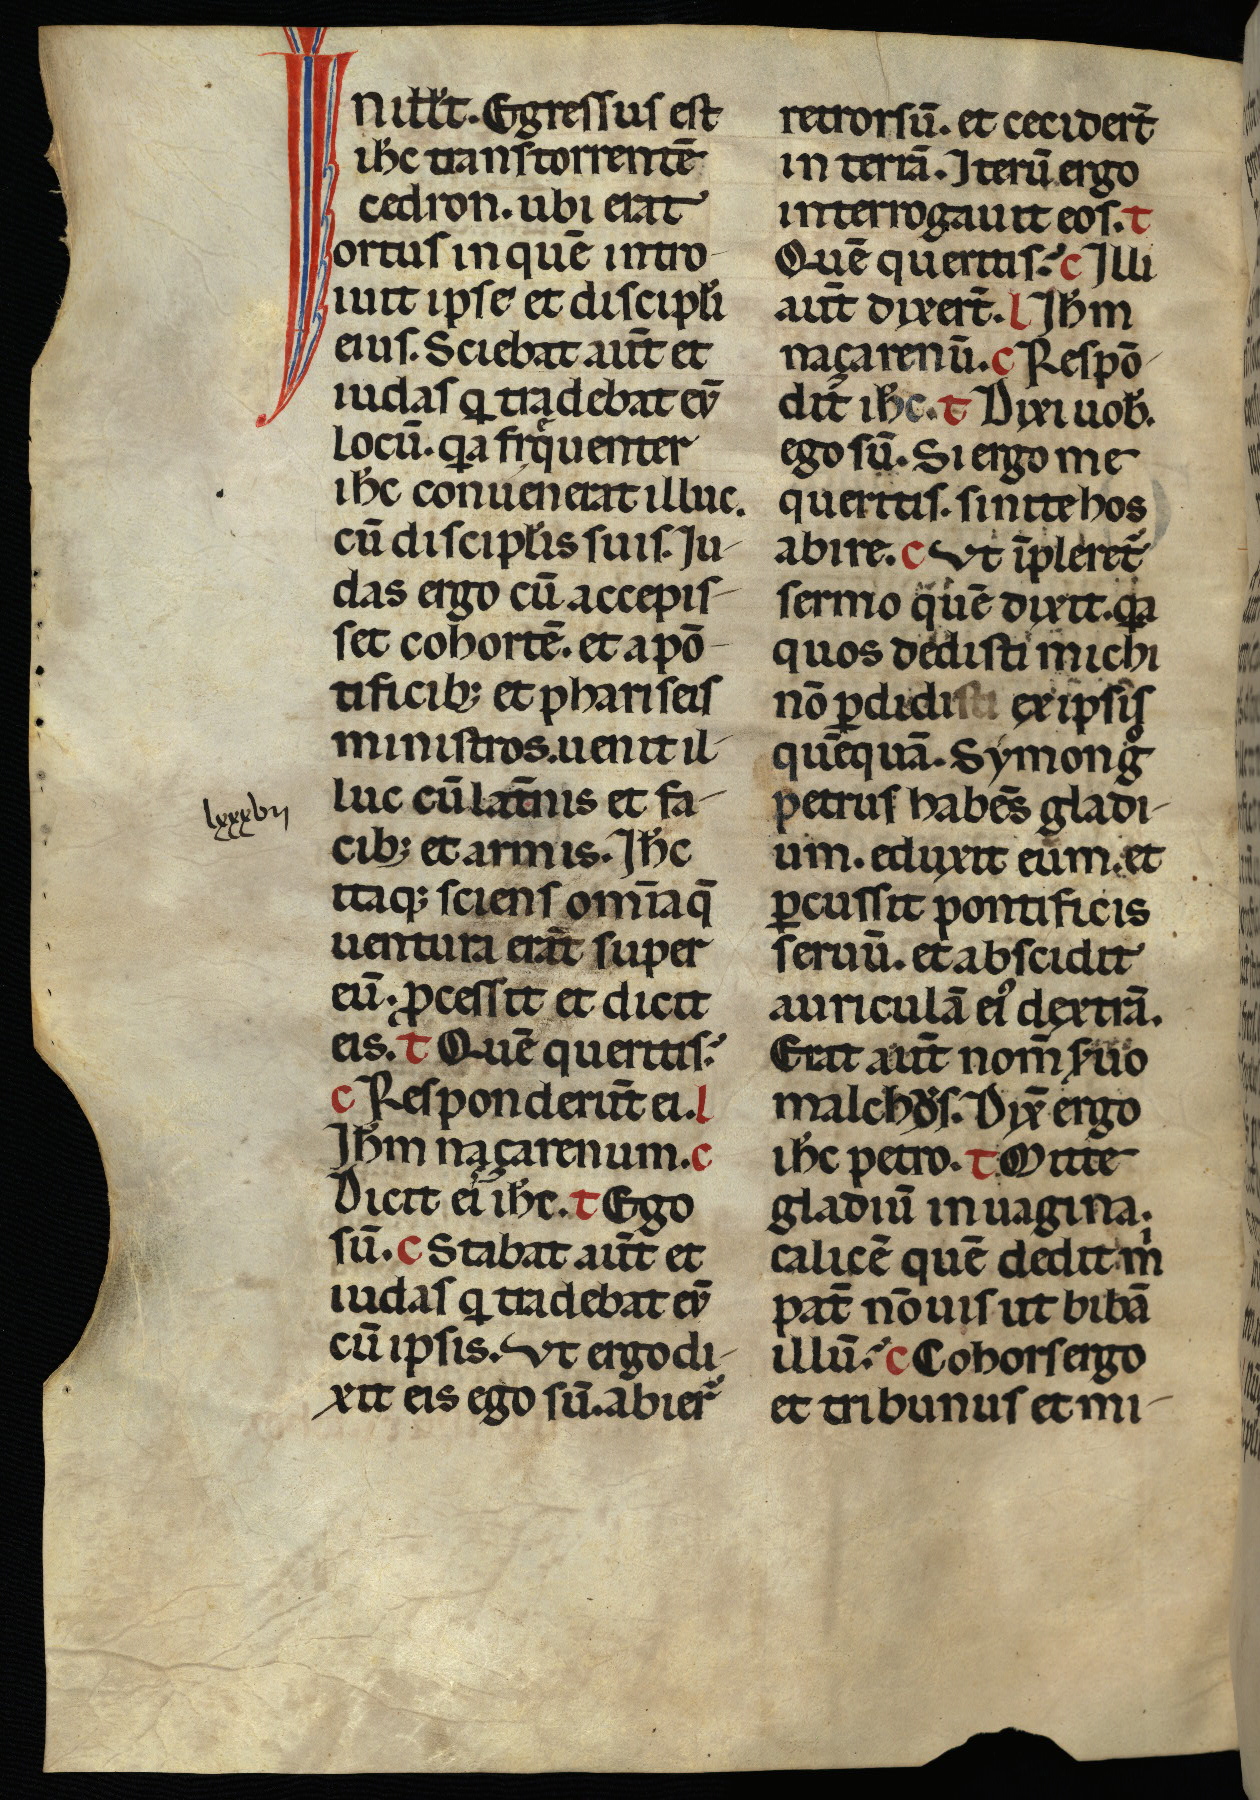 In illo t̄. Egressus est
ihc trans torrentē
cedron. ubi erat
ortus in quē intro
iuit ipse et discipłi
eius. Sciebat aut̄ et
iudas q tradebat eū
locū. qa frequenter
ihc conuenerat illuc.
cū disciplis suis. Ju
das ergo cū accepis
set cohortē. et a pō
tificib; et phariseis
ministros. uenit il
luc cū lat̄nis et fa
lxxxvii
cib; et armis. Jhc
itaq; sciens om̄ia q̄
uentura erāt super
eū. ꝓcessit et dicit
eis. t Quē queritis?
c Responderūt ei. l
Jhm naçarenum. c
Dicit ei ihc. t Ego
sū. c Stabat aut̄ et
iudas q tradebat eū
cū ipsis. Vt ergo di
xit eis ego sū. abier̄
retrorsū. et cecidert̄
in terrā. Iterū ergo
interrogauit eos. t
Quē queritis? c Illi
aut̄ dixert̄. l Jhm
naçarenū. c Respō
dit ihc. t Dixi uob̄.
ego sū. Si ergo me
queritis. sinite hos
abire. c Vt īpleret̄
sermo quē dixit. qa
quos dedisti michi
nō ꝑdidisti ex ipsis
quēquā. Symon g̊
petrus habēs gladi
um. eduxit eum. et
ꝑcussit pontificis
seruū. et abscidit
auriculā ei᷒ dextrā.
Erat aut̄ nom̄ suo
malchus. Dix̄ ergo
ihc petro. t Mitte
gladiū in uagina.
calicē quē dedit m̍
pat̄ nō uis ut bibā
illū? c Cohors ergo
et tribunus et mi